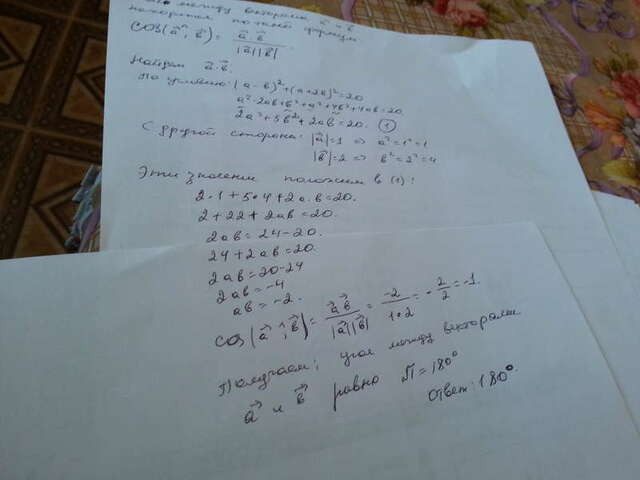 между векторами a и b
находится по этой формуле
cos(a⃗ ^, b⃗) = a⃗·b⃗ / |a⃗||b⃗|
Найдем a⃗·b⃗.
По условию: (a-b)²+(a+2b)²=20
a²-2ab+b²+a²+4b²+4ab=20.
2a²+5b²+2ab=20. (1)
С другой стороны: |a⃗|=1 => a²=1²=1
|b⃗|=2 => b²=2²=4
Эти значения положим в (1):
2·1+5·4+2a·b=20.
2+22+2ab=20.
2ab=24-20.
24+2ab=20.
2ab=20-24
2ab=-4
ab=-2.
cos(a⃗ ^, b⃗)= a⃗b⃗ / |a⃗||b⃗| = -2 / 1·2 = - 2/2 = -1.
Получаем; угол между векторами
a⃗ и b⃗ равно π=180°
Ответ: 180°.